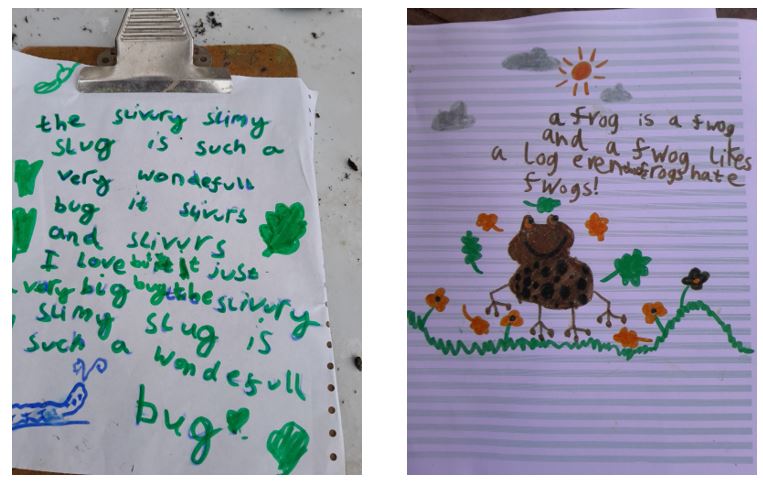 the slivury slimy
slug is such a
very wondefull
bug it slivurs
and slivurs
I love it just
very big bug the slivury
slimy slug is
such a wondefull
bug!
a frog is a fwog
and a fwog likes
a log even frogs hate
fwogs!